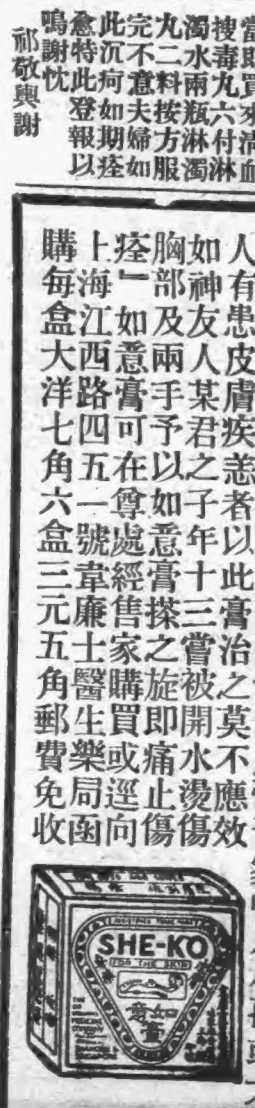 當即買來清血
搜毒丸六付淋
濁水兩瓶淋濁
丸二料按方服
完不意夫婦如
此沉疴如期痊
愈特此登報以
鳴謝忱
祁敬興謝
人有患皮膚疾恙者以此膏治之莫不應效
如神友人某君之子年十三嘗被開水燙傷
胸部及兩手予以如意膏搽之旋即痛止傷
痊』如意膏可在尊處經售家購買或逕向
上海江西路四五一號韋廉士醫生藥局函
購每盒大洋七角六盒三元五角郵費免收
SHE-KO
FOR THE SKIN
如意膏